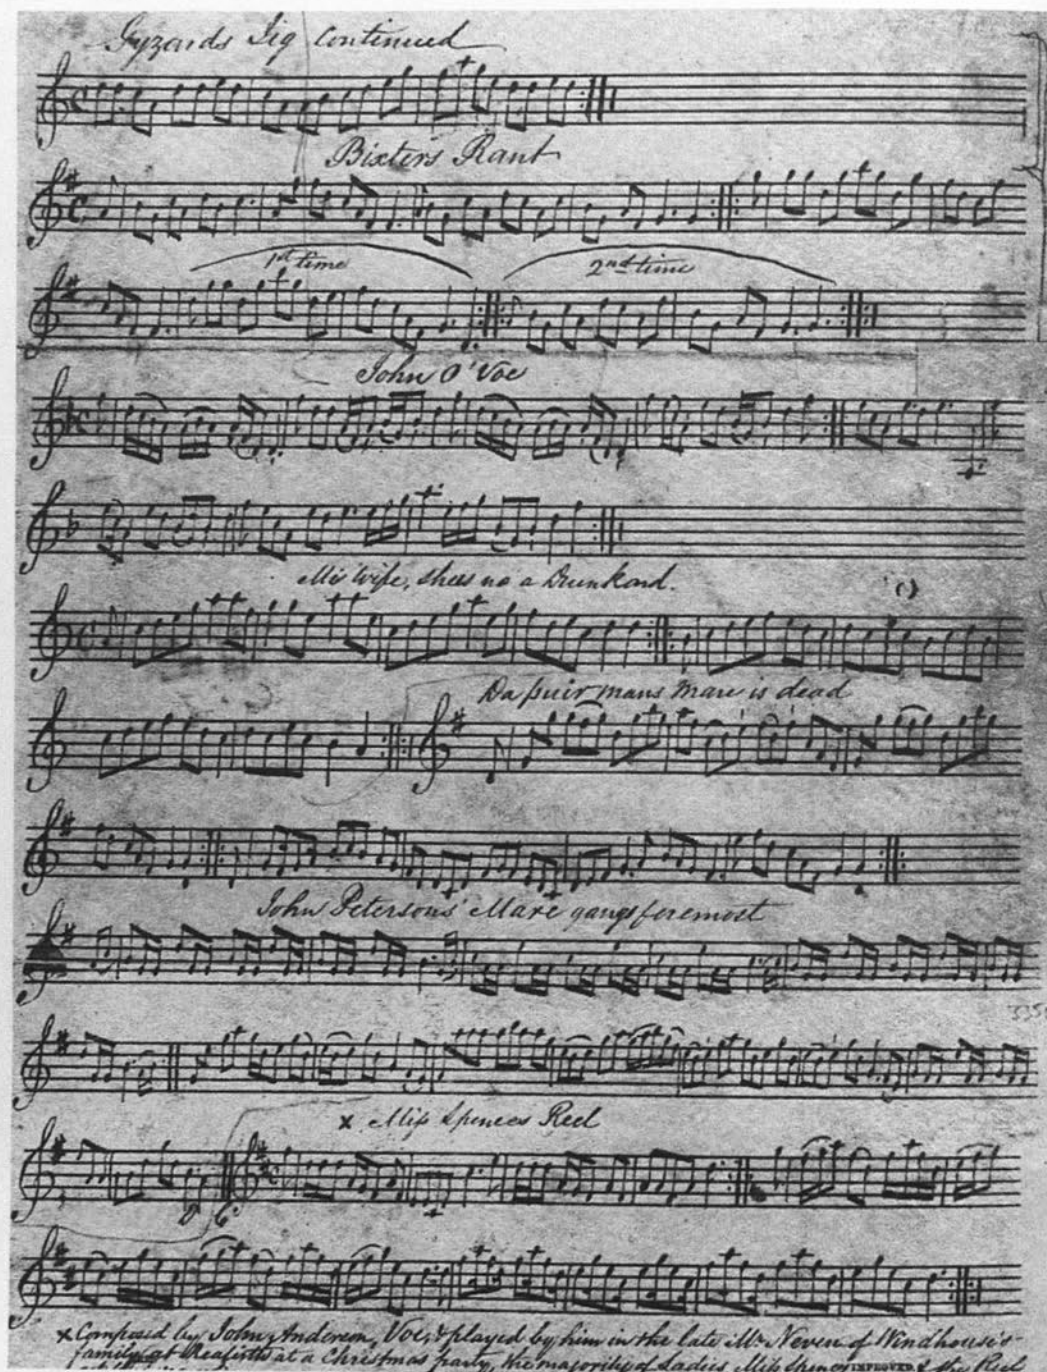 Gyzards Jig Continued
Bixters Rant
1st time
2nd time
John O' Voe
Mi wife, shees no a Drunkard.
Da puir mans mare is dead
John Petersons' Mare gangs foremost
335
x Miſs Spences Reel
x Composed by John Anderson, Voe, & played by him in the late Mr Neven of Windhouse's
family at Reafirth at a Christmas party, the majority of Ladies Miſs Spences